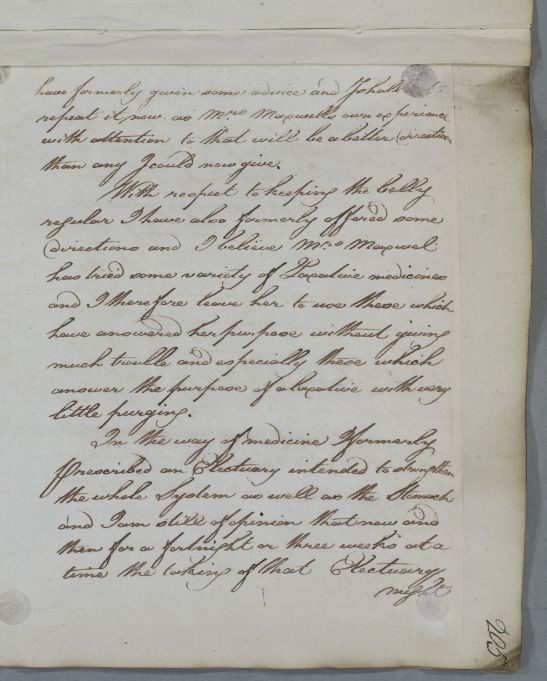 have formerly given some advice and I shall
repeat it now as Mrs Maxwells own experience
with attention to that will be a better direction
than any I could now give.
With respect to keeping the belly
regular I have also formerly offered some
directions and I believe Mrs Maxwel
has tried some variety of Laxative medicines
and I therefore leave her to use these which
have answered her purpose without giving
much trouble and especially these which
answer the purpose of a laxative with very
little purging.
In the way of medicine I formerly
prescribed an Electuary intended to strengthen
the whole System as well as the Stomach
and I am still of opinion that now and
then for a fortnight or three weeks at a
time the taking of that Electuary
might
205